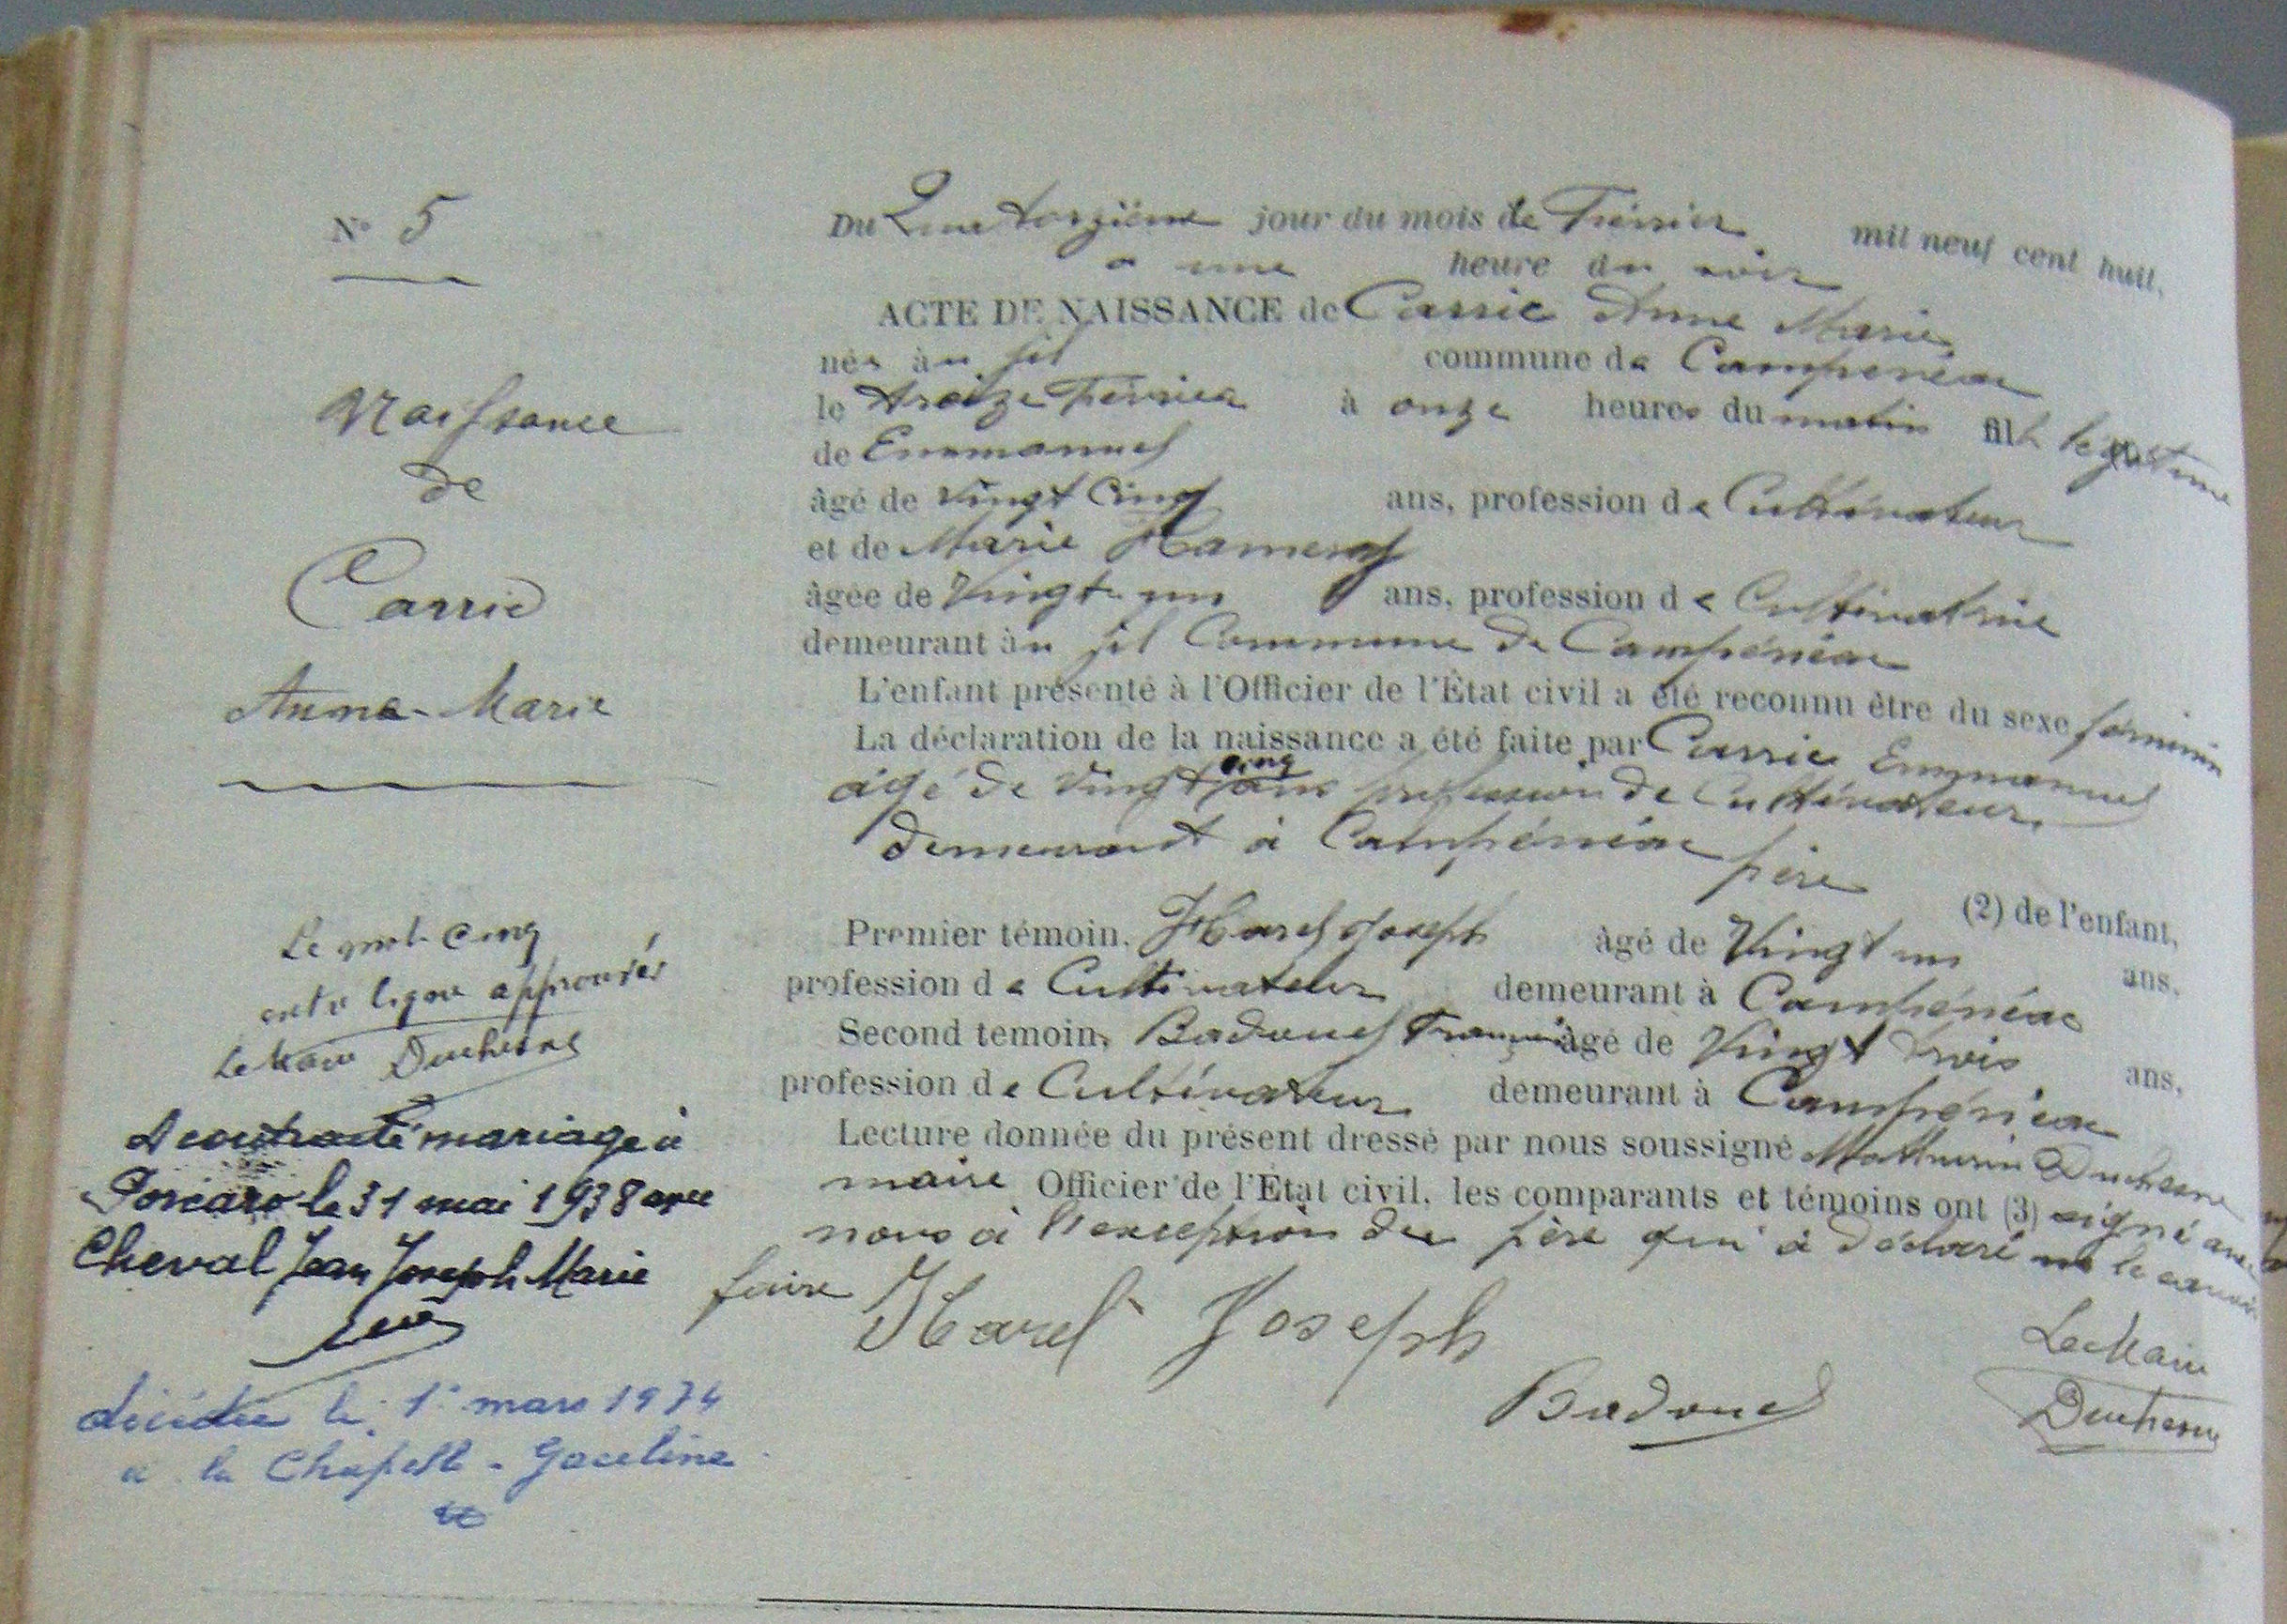 N° 5
Naissance
de
Carric
Anne-Marie
Le mot cinq
entre ligne approuvés
Le Maire Duchesne
A contracté mariage à
Porcaro le 31 mai 1938 avec
Cheval Jean Joseph Marie
décédée le 1er mars 1974
à la Chapelle-Gaceline
Du Quatorzième jour du mois de Février mil neuf cent huit,
a une heure du soir
ACTE DE NAISSANCE de Carric Anne Marie
née àu fil commune de Campénéac
le treize Février à onze heures du matin fille légitime
de Emmanuel
âgé de Vingt Cinq ans, profession de Cultivateur
et de Marie Hamery
âgée de Vingt-un ans, profession de Cultivatrice
demeurant àu fil Commune de Campénéac
L'enfant présenté à l'Officier de l'État civil a été reconnu être du sexe féminin
La déclaration de la naissance a été faite par Carric Emmanuel
âgé de Vingt cinq ans profession de Cultivateur
demeurant à Campénéac père (2) de l'enfant,
Premier témoin, Harel Joseph âgé de Vingt un ans,
profession de Cultivateur demeurant à Campénéac
Second temoin, Badouel François âgé de Vingt trois ans,
profession de Cultivateur demeurant à Campénéac
Lecture donnée du présent dressé par nous soussigné Mathurin Duchesne
maire Officier de l'État civil, les comparants et témoins ont (3) signé avec
nous à l'exception du père qui à déclaré ne le savoir
faire
Harel Joseph
Badouel
Le Maire
Duchesne